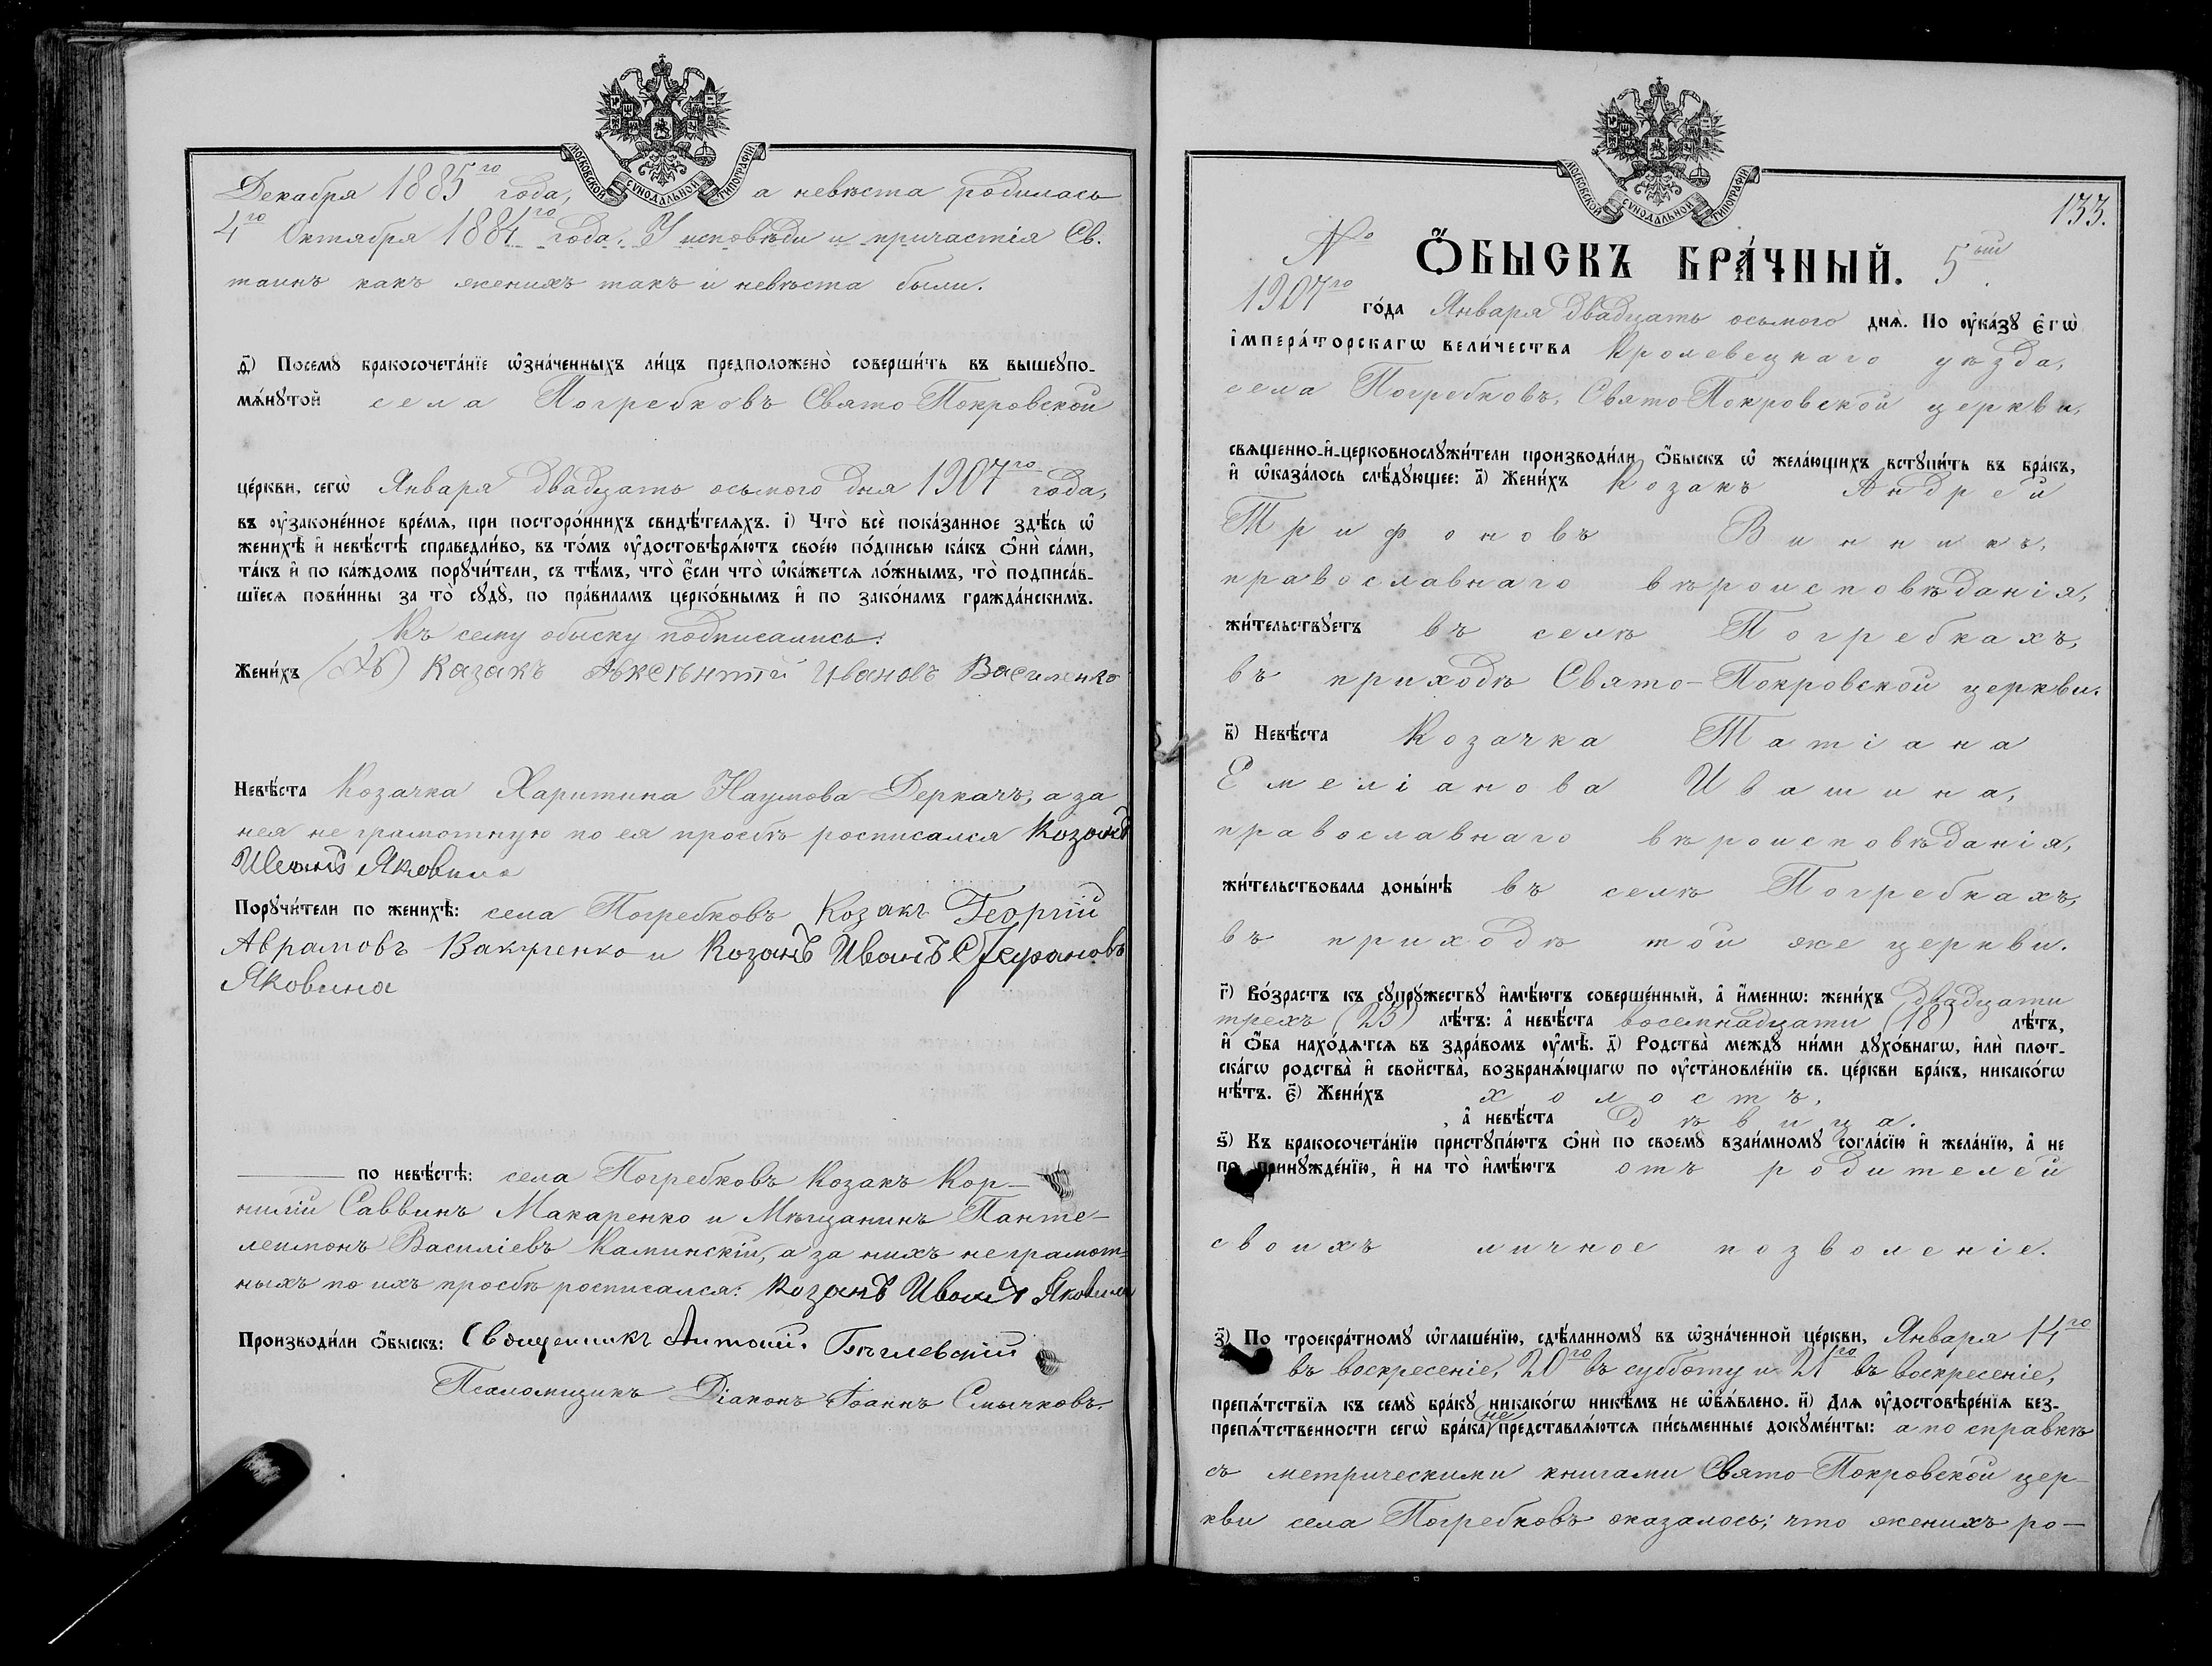 МОСКОВСКОЙ СѴНОДАЛЬНОЙ ТИПОГРАФІИ
Декабря 1885го года, а невѣста родилась
4го Октября 1884го года. У исповѣди и причастія Св.
таинъ какъ женихъ такъ и невѣста были.
д҃) Посемꙋ бракосочета́нїе ѡ҆зна́ченныхъ ли́цъ предположено̀ соверши́ть въ вышеꙋпо-
мѧ́нꙋтой села Погребковъ Свято-Покровской
це́ркви, сегѡ̀ Января двадцать осьмого дня 1907го года,
въ ᲂу҆законе́нное вре́мѧ, при посторо́ннихъ свидѣ́телѧхъ. і҃) Что̀ всѐ пока́занное здѣ́сь ѡ҆
женихѣ̀ и҆ невѣ́стѣ справедли́во, въ то́мъ ᲂу҆достовѣрѧ́ютъ свое́ю по́дписью ка́къ ѻ҆нѝ са́ми,
та́къ и҆ по ка́ждомъ порꙋчи́тели, съ тѣ́мъ, что̀ є҆́сли что̀ ѡ҆ка́жетсѧ ло́жнымъ, то̀ подписа́в-
шїесѧ пови́нны за то̀ сꙋдꙋ̀, по пра́виламъ церко́внымъ и҆ по зако́намъ гражда́нскимъ.
Къ сему обыску подписались:
Жени́хъ Казакъ Авксентій Ивановъ Василенко
Невѣ́ста Козачка Харитина Наумова Деркачъ, а за
нея не грамотную по ея просьбѣ росписался Козакъ
Иванъ Яковина
Порꙋчи́тели по женихѣ̀: села Погребковъ Козакъ Георгій
Аврамовъ Вакуленко и Козакъ Иванъ Яковина
по невѣ́стѣ: села Погребковъ Козакъ Кор-
нилій Саввинъ Макаренко и Мѣщанинъ Панте-
леимонъ Василіевъ Каминскій, а за нихъ не грамот-
ныхъ по ихъ просьбѣ росписался: Козакъ Иванъ Яковина
Производи́ли ѻ҆́быскъ: Священникъ Антоній
Псаломщикъ Діаконъ Іоаннъ Смычковъ.
МОСКОВСКОЙ СѴНОДАЛЬНОЙ ТИПОГРАФІИ
133.
№ Ѻ҆́БЫСКЪ БРА́ЧНЫЙ. 5ый
1907го го́да Января двадцать осьмого днѧ̀. По ᲂу҆ка́зꙋ є҆гѡ̀
і҆мпера́торскагѡ вели́чества Кролевецкаго уѣзда,
села Погребковъ, Свято-Покровской церкви,
свѧщенно-и҆-церковнослꙋжи́тели производи́ли ѻ҆́быскъ ѡ҆ жела́ющихъ встꙋпи́ть въ бра́къ,
и҆ ѡ҆каза́лось слѣ́дꙋющее: а҃) Жени́хъ Козакъ Андрей
Трифоновъ Винникъ,
православнаго вѣроисповѣданія,
жи́тельствꙋетъ въ селѣ Погребкахъ,
въ приходѣ Свято-Покровской церкви.
в҃) Невѣ́ста Козачка Татіана
Емеліанова Ивашина,
православнаго вѣроисповѣданія,
жи́тельствовала доны́нѣ въ селѣ Погребкахъ,
въ приходѣ той же церкви.
г҃) Во́зрастъ къ сꙋпрꙋ́жествꙋ и҆мѣ́ютъ соверше́нный, а҆ и҆́менно: жени́хъ двадцати
трехъ (23) лѣ́тъ: а҆ невѣ́ста восемнадцати (18) лѣ́тъ,
и҆ ѻ҆́ба нахо́дѧтсѧ въ здра́вомъ ᲂу҆мѣ̀. д҃) Родства̀ междꙋ̀ ни́ми дꙋхо́внагѡ, и҆лѝ плот-
ска́гѡ родства̀ и҆ сво́йства, возбранѧ́ющагѡ по ᲂу҆становле́нїю св. це́ркви бра́къ, никако́гѡ
нѣ́тъ. є҃) Жени́хъ холостъ,
, а҆ невѣ́ста дѣвица.
ѕ҃) Къ бракосочета́нїю пристꙋпа́ютъ ѻ҆нѝ по своемꙋ̀ взаи́мномꙋ согла́сїю и҆ жела́нїю, а҆ не
по принꙋжде́нїю, и҆ на то̀ и҆мѣ́ютъ отъ родителей
своихъ личное позволеніе.
з҃) По троекра́тномꙋ ѡ҆глаше́нїю, сдѣ́ланномꙋ въ ѡ҆зна́ченной це́ркви, Января 14го
въ воскресеніе, 20го въ субботу и 21го въ воскресеніе,
препѧ́тствїѧ къ семꙋ̀ бра́кꙋ никако́гѡ никѣ́мъ не ѡ҆б̾ѧ́влено. и҃) Длѧ ᲂу҆достовѣре́нїѧ без-
препѧ́тственности сегѡ̀ бра́ка не представлѧ́ютсѧ пи́сьменные докꙋме́нты: а по справкѣ
съ метрическими книгами Свято-Покровской цер-
кви села Погребковъ оказалось; что женихъ ро-